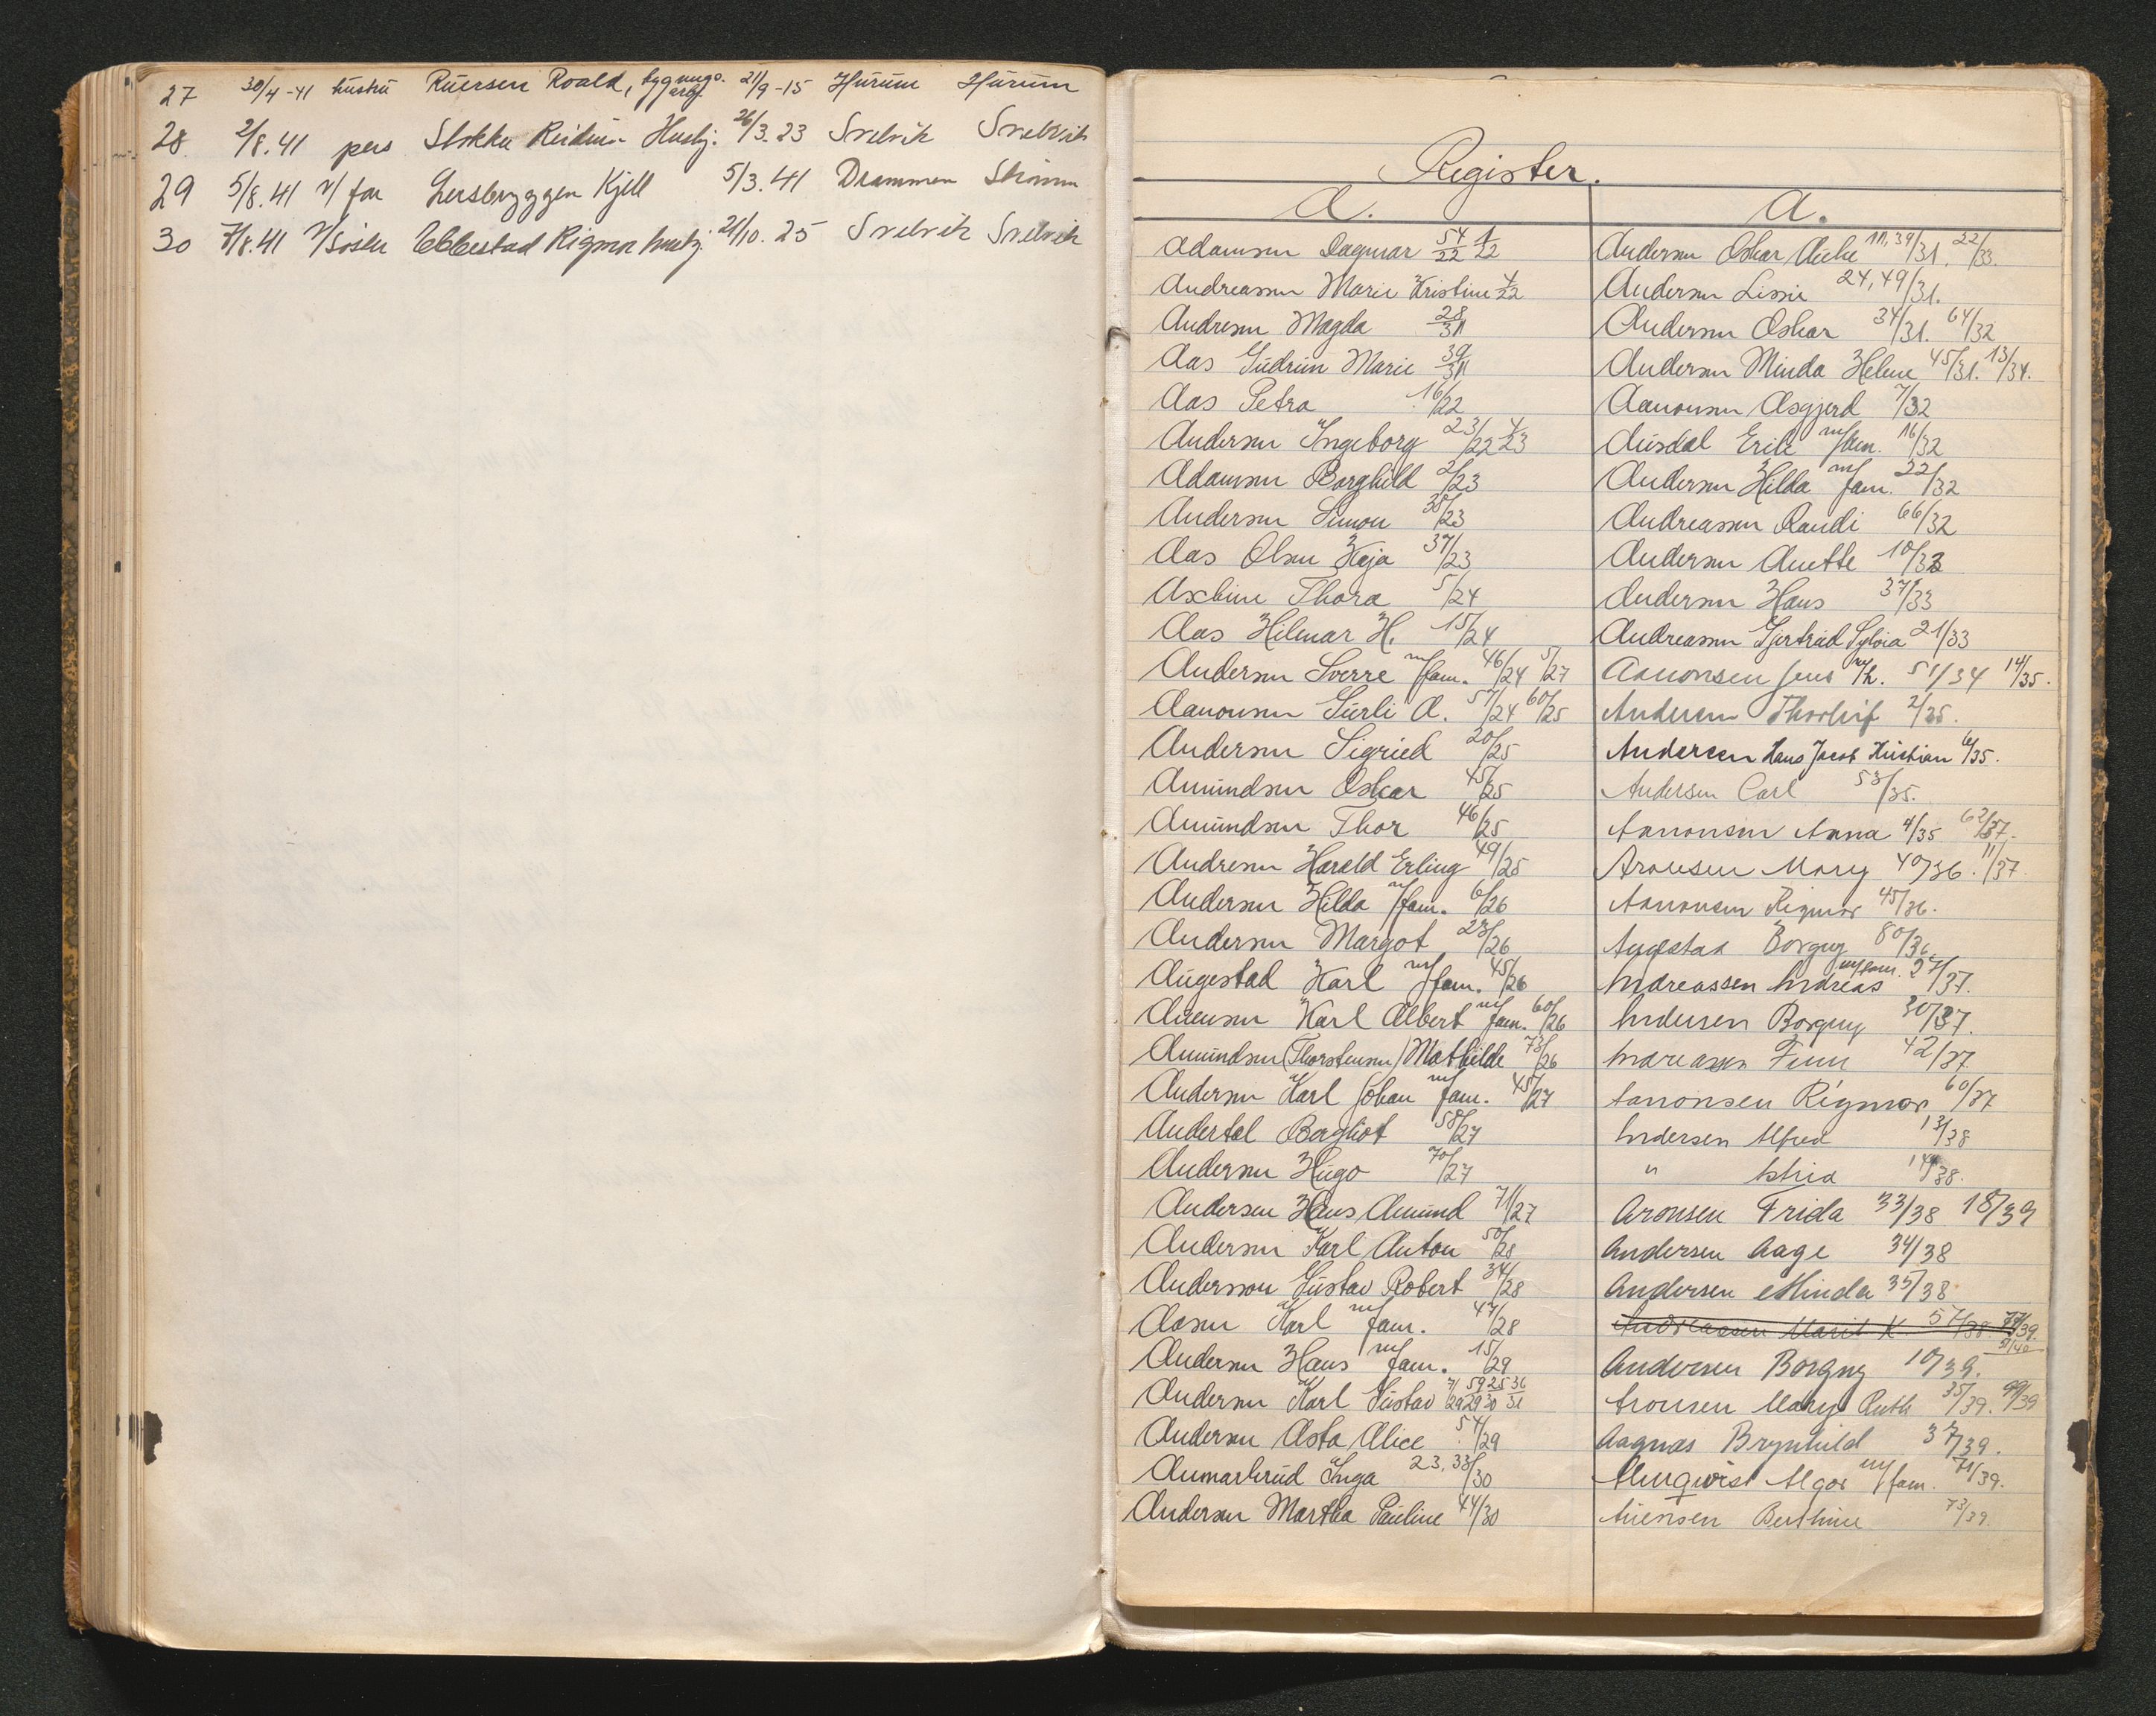 27 30/4-41 hustru Ruersen Roald, bygnings. arb. 21/9-15 Hurum Hurum
28 2/8.41 pers Stokke Reidun Husbj. 26/3.23 Svelvik Svelvik
29 5/8.41 v/ far Lersbryggen Kjell 5/3.41 Drammen Strømm
30 7/8.41 v/ søster Ebbestad Rigmor husbj. 21/10.25 Svelvik Svelvik
Register.
A.
Adamsen Dagmar 54/22 1/22
Andreassen Marie Kristine 4/22
Andresen Magda 28/31
Aas Gudrun Marie 39/31
Aas Petra 16/22
Andersen Ingeborg 23/22 4/23
Adamsen Borghild 2/23
Andersen Simon 35/23
Aas Olsen Kaja 37/23
Thora 5/24
Aas Hilmar H. 15/24
Andersen Sverre m/fam. 46/24 5/27
Aanonsen Surli A. 57/24 60/25
Andersen Sigried 20/25
Amundsen Oskar 45/25
Amundsen Thor 46/25
Andresen Harald Erling 49/25
Andersen Hilda m/fam. 6/26
Andersen Margot 23/26
Augestad Karl m/fam. 45/26
Karl Albert m/fam. 60/26
Amundsen (Thorstensen) Mathilde 73/26
Andersen Karl Johan m/fam. 45/27
Andertol Bergliot 58/27
Andersen Hugo 70/27
Andersen Hans Amund 71/27
Andersen Karl Anton 50/28
Andersson Gustav Robert 34/28
Aasen Karl m/fam. 47/28
Andersen Hans m/fam. 15/29
Andersen Karl Gustav 7/29 59/29 25/30 36/31
Andersen Asta Alice 54/29
Aumarkrud Inga 23, 33/30
Andersen Martha Pauline 44/30
A.
Andersen Oskar 11, 39/31. 22/33.
Andersen Lissie 24, 49/31.
Andersen Oskar 34/31. 64/32
Andersen Minda Helene 45/31. 13/34.
Aanonsen Asgjerd 7/32
Ausdal Erik m/fam. 16/32
Andersen Hilda m/fam. 22/32
Andreassen Randi 66/32
Andersen Anette 10/33
Andersen Hans 37/33
Andreassen Gjertrud Sylvia 21/33
Aanonsen Jens m/h. 51/34 14/35.
Andersen Thorleif 2/35.
Andersen Hans Jacob Kristian 6/35.
Andersen Carl 53/35.
Aanonsen Anna 4/35 62/37.
Aronsen Mary 40/36. 11/37.
Aanonsen Rigmor 45/36.
Augestad Borgny 80/36.
Andreassen Andreas m/fam. 27/37.
Andersen Borgny 30/37.
Andreassen Finn 42/37
Aanonsen Rigmor 60/37
Andersen Alfred 13/38
" Astrid 14/38.
Aronsen Frida 33/38 18/39
Andersen Aage 34/38
Andersen Minda 35/38
Andreassen Marit K. 57/38 77/39. 9/40
Andersen Borgny 10/39.
Aronsen Mary Ruth 35/39. 99/39
Aagnæs Brynhild 37/39.
Almqvist Algor m/fam. 71/39.
Auensen Berthine 73/39.